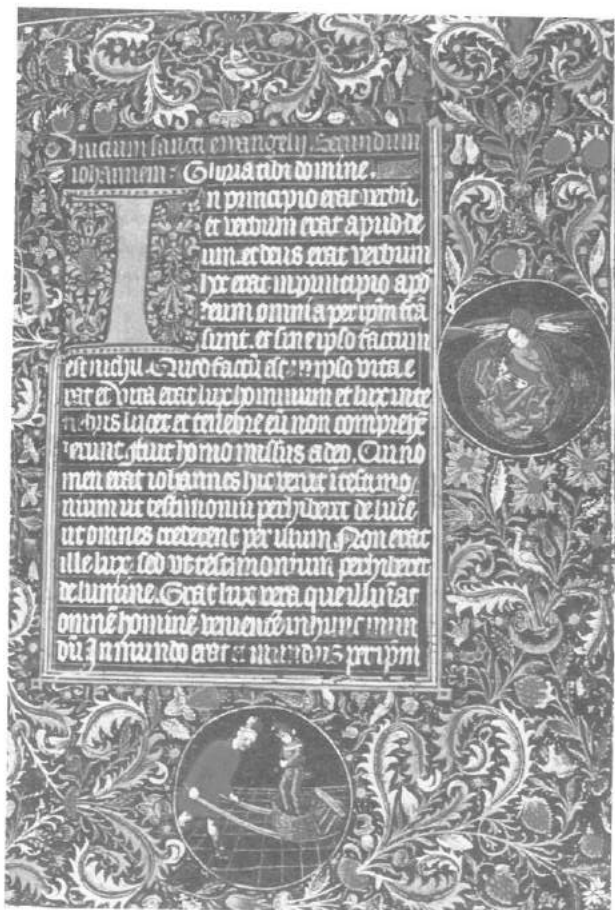 Inicium sancti ewangelij. Secundum
iohannem. Gloria tibi domine.
In principio erat verbū
et verbum erat apud de
um. et deus erat verbum
hoc erat in principio apd
deum omnia per ipm fcā
sunt. et sine ipso factum
est nichil. Quod factū est in ipso vita e
rat et vita erat lux hominum et lux in te
nebris lucet et tenebre eū non comprehē
derunt. Fuit homo missus a deo. Cui no
men erat iohannes hic venit ī testimo
nium ut testimoniū perhiberet de lumīe
ut omnes crederent per illum. Non erat
ille lux. sed vt testimonium perhiberet
de lumine. Erat lux vera que illuīat
omnē hominē venientē in hunc mun
dū. In mundo erat et mundus per ipm